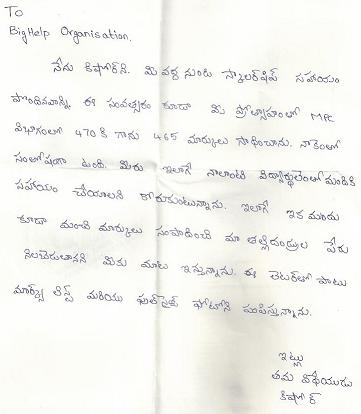 To
BigHelp Organisation.
నేను కిషోర్‌ని. మీ వద్ద నుండి స్కాలర్‌షిప్ సహాయం
పొందినవాన్ని ఈ సంవత్సరం కూడా మీ ప్రోత్సాహంతో MPC
విభాగంలో 470 కి గాను 465 మార్కులు సాధించాను. నాకెంతో
సంతోషంగా ఉంది. మీరు ఇలాగే నాలాంటి విద్యార్థులెంతోమందికి
సహాయం చేయాలని కోరుకుంటున్నాను. ఇలాగే ఇక ముందు
కూడా మంచి మార్కులు సంపాదించి మా తల్లిదండ్రుల పేరు
నిలబెడుతానని మీకు మాట ఇస్తున్నాను. ఈ లెటర్‌తో పాటు
మార్క్స్ లిస్ట్ మరియు ఫుల్‌సైజ్ ఫోటోని పంపిస్తున్నాను.
ఇట్లు
తమ విధేయుడు
కిషోర్